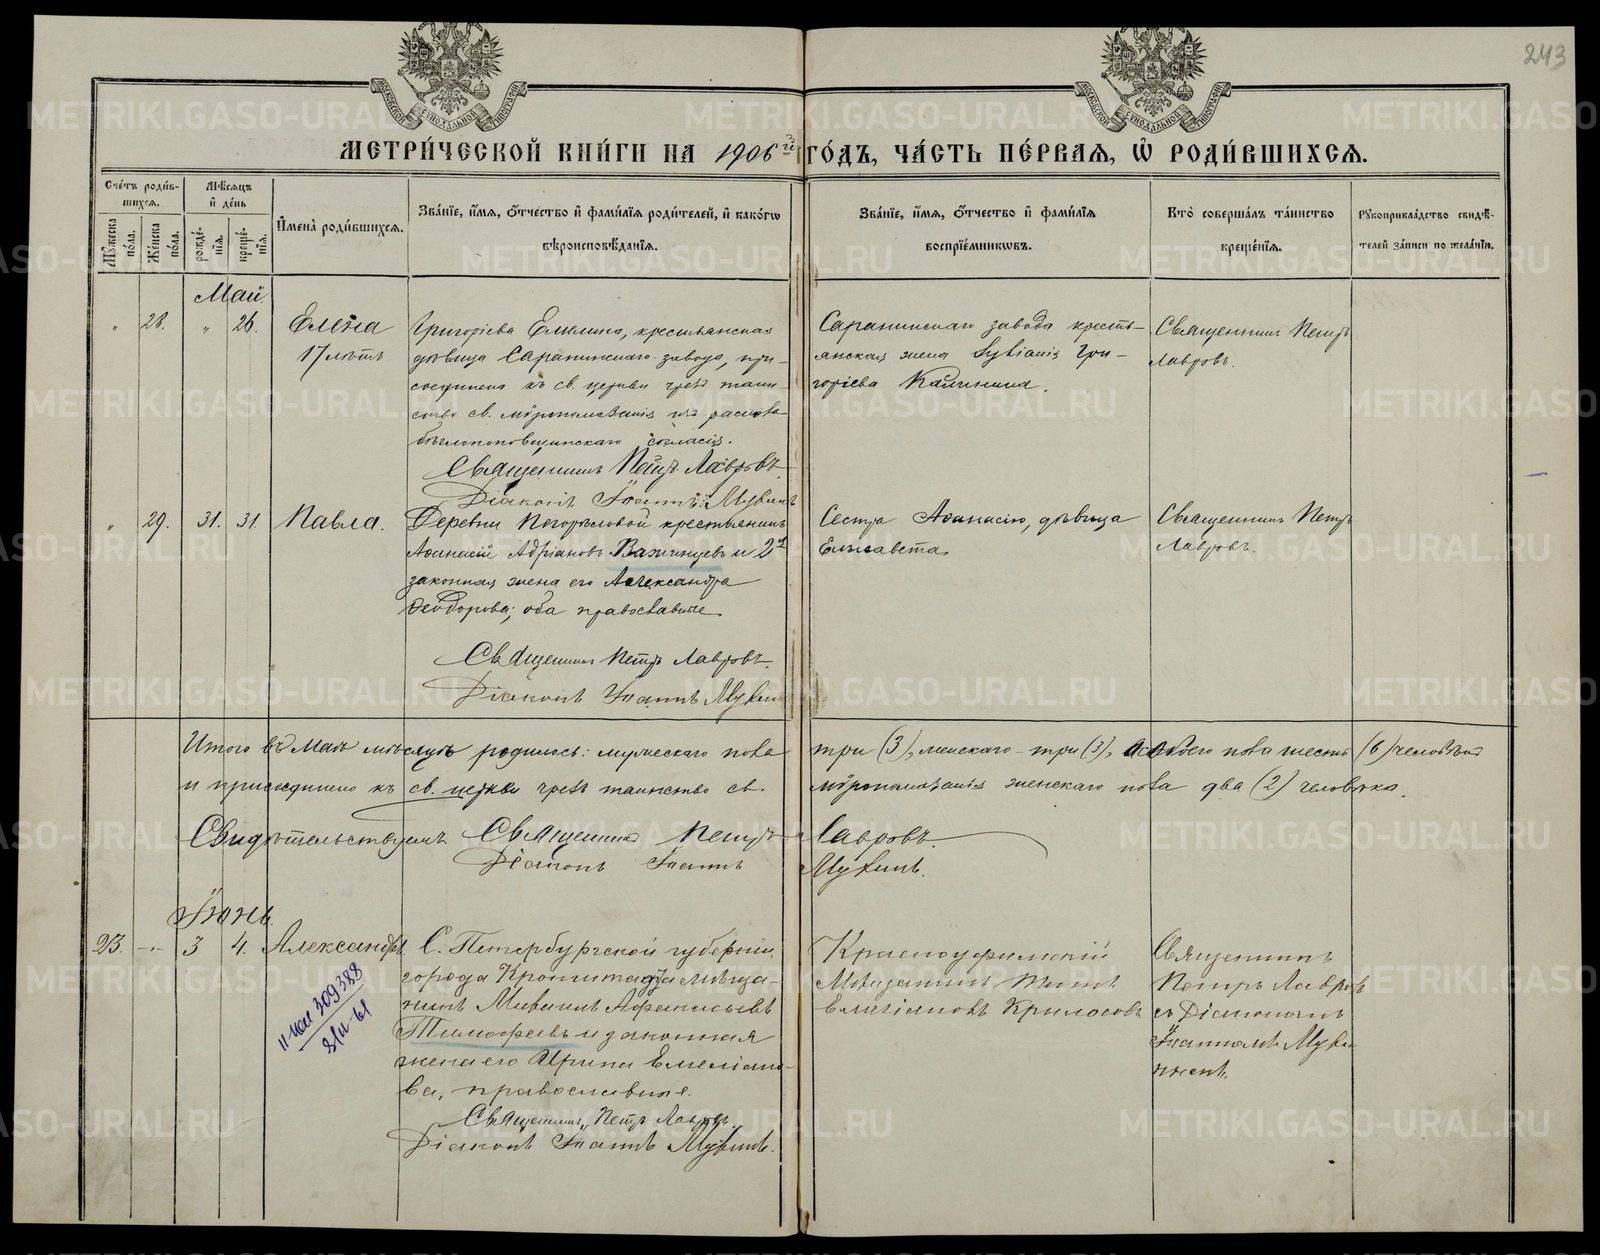 243
МЕТРИ́ЧЕСКОЙ КНИ́ГИ НА 1906 го́дъ, ЧА́СТЬ ПЕ́РВАЯ, Ѿ РОДИ́ВШИХСЯ.
Сче́тъ роди́вшихся.
Мѣ́сяцъ и де́нь
Мꙋжеска по́ла.
Же́нска по́ла.
рожде́нїя.
креще́нїя.
Имена̀ роди́вшихся.
Зва́нїе, и́мя, ѻ́тчество и фами́лїя роди́телей, и како́гѡ
вѣроисповѣ́данїя.
Зва́нїе, и́мя, ѻ́тчество и фами́лїя
воспрїе́мникѡвъ.
Кто̀ соверша́лъ та́инство
креще́нїя.
Рꙋкоприкла́дство свидѣ́-
телей за́писи по жела́нїю.
Май.
" 28. " 26. Елена
17 лѣтъ
Григоріева Емилина, крестьянская
дѣвица Саранинскаго завода, при-
соединена къ св. церкви чрезъ таин-
ство св. мѵропомазанія изъ раскола
бѣглопоповщинскаго согласія.
Священникъ Петръ Лавровъ
Діаконъ Іоаннъ Мукинъ
Саранинскаго завода кресть-
янская жена Гри-
горіева Калинина.
Священникъ Петръ
Лавровъ.
" 29. 31. 31. Павла.
Деревни Погорѣловой крестьянинъ
Аѳанасій Адріановъ Важинцевъ и 2я
законная жена его Александра
Ѳеодорова; оба православные.
Священникъ Петръ Лавровъ.
Діаконъ Іоаннъ Мукинъ
Сестра Аѳанасію, дѣвица
Елисавета.
Священникъ Петръ
Лавровъ.
Итого въ Маѣ мѣсяцѣ родилось: мужескаго пола три (3), женскаго – три (3), обоего пола шесть (6) человѣкъ
и присоединено къ св. церкви чрезъ таинство св. мѵропомазанія женскаго пола два (2) человѣка.
Свидѣтельствуемъ Священникъ Петръ Лавровъ.
Діаконъ Іоаннъ Мукинъ.
Іюнь.
23. -"- 3 4. Александръ
II-юи 309388
8/II-61
С. Петербургской губерніи,
города Кронштадта мѣща-
нинъ Михаилъ Афанасьевъ
Тимофеевъ и законная
жена его Ирина Емеліано-
ва, православные.
Священникъ Петръ Лавровъ
Діаконъ Іоаннъ Мукинъ.
Красноуфимскій
Мѣщанинъ Титъ
Емеліановъ Крылосовъ
Священникъ
Петръ Лавровъ
съ Діакономъ
Іоанномъ Муки-
нымъ.